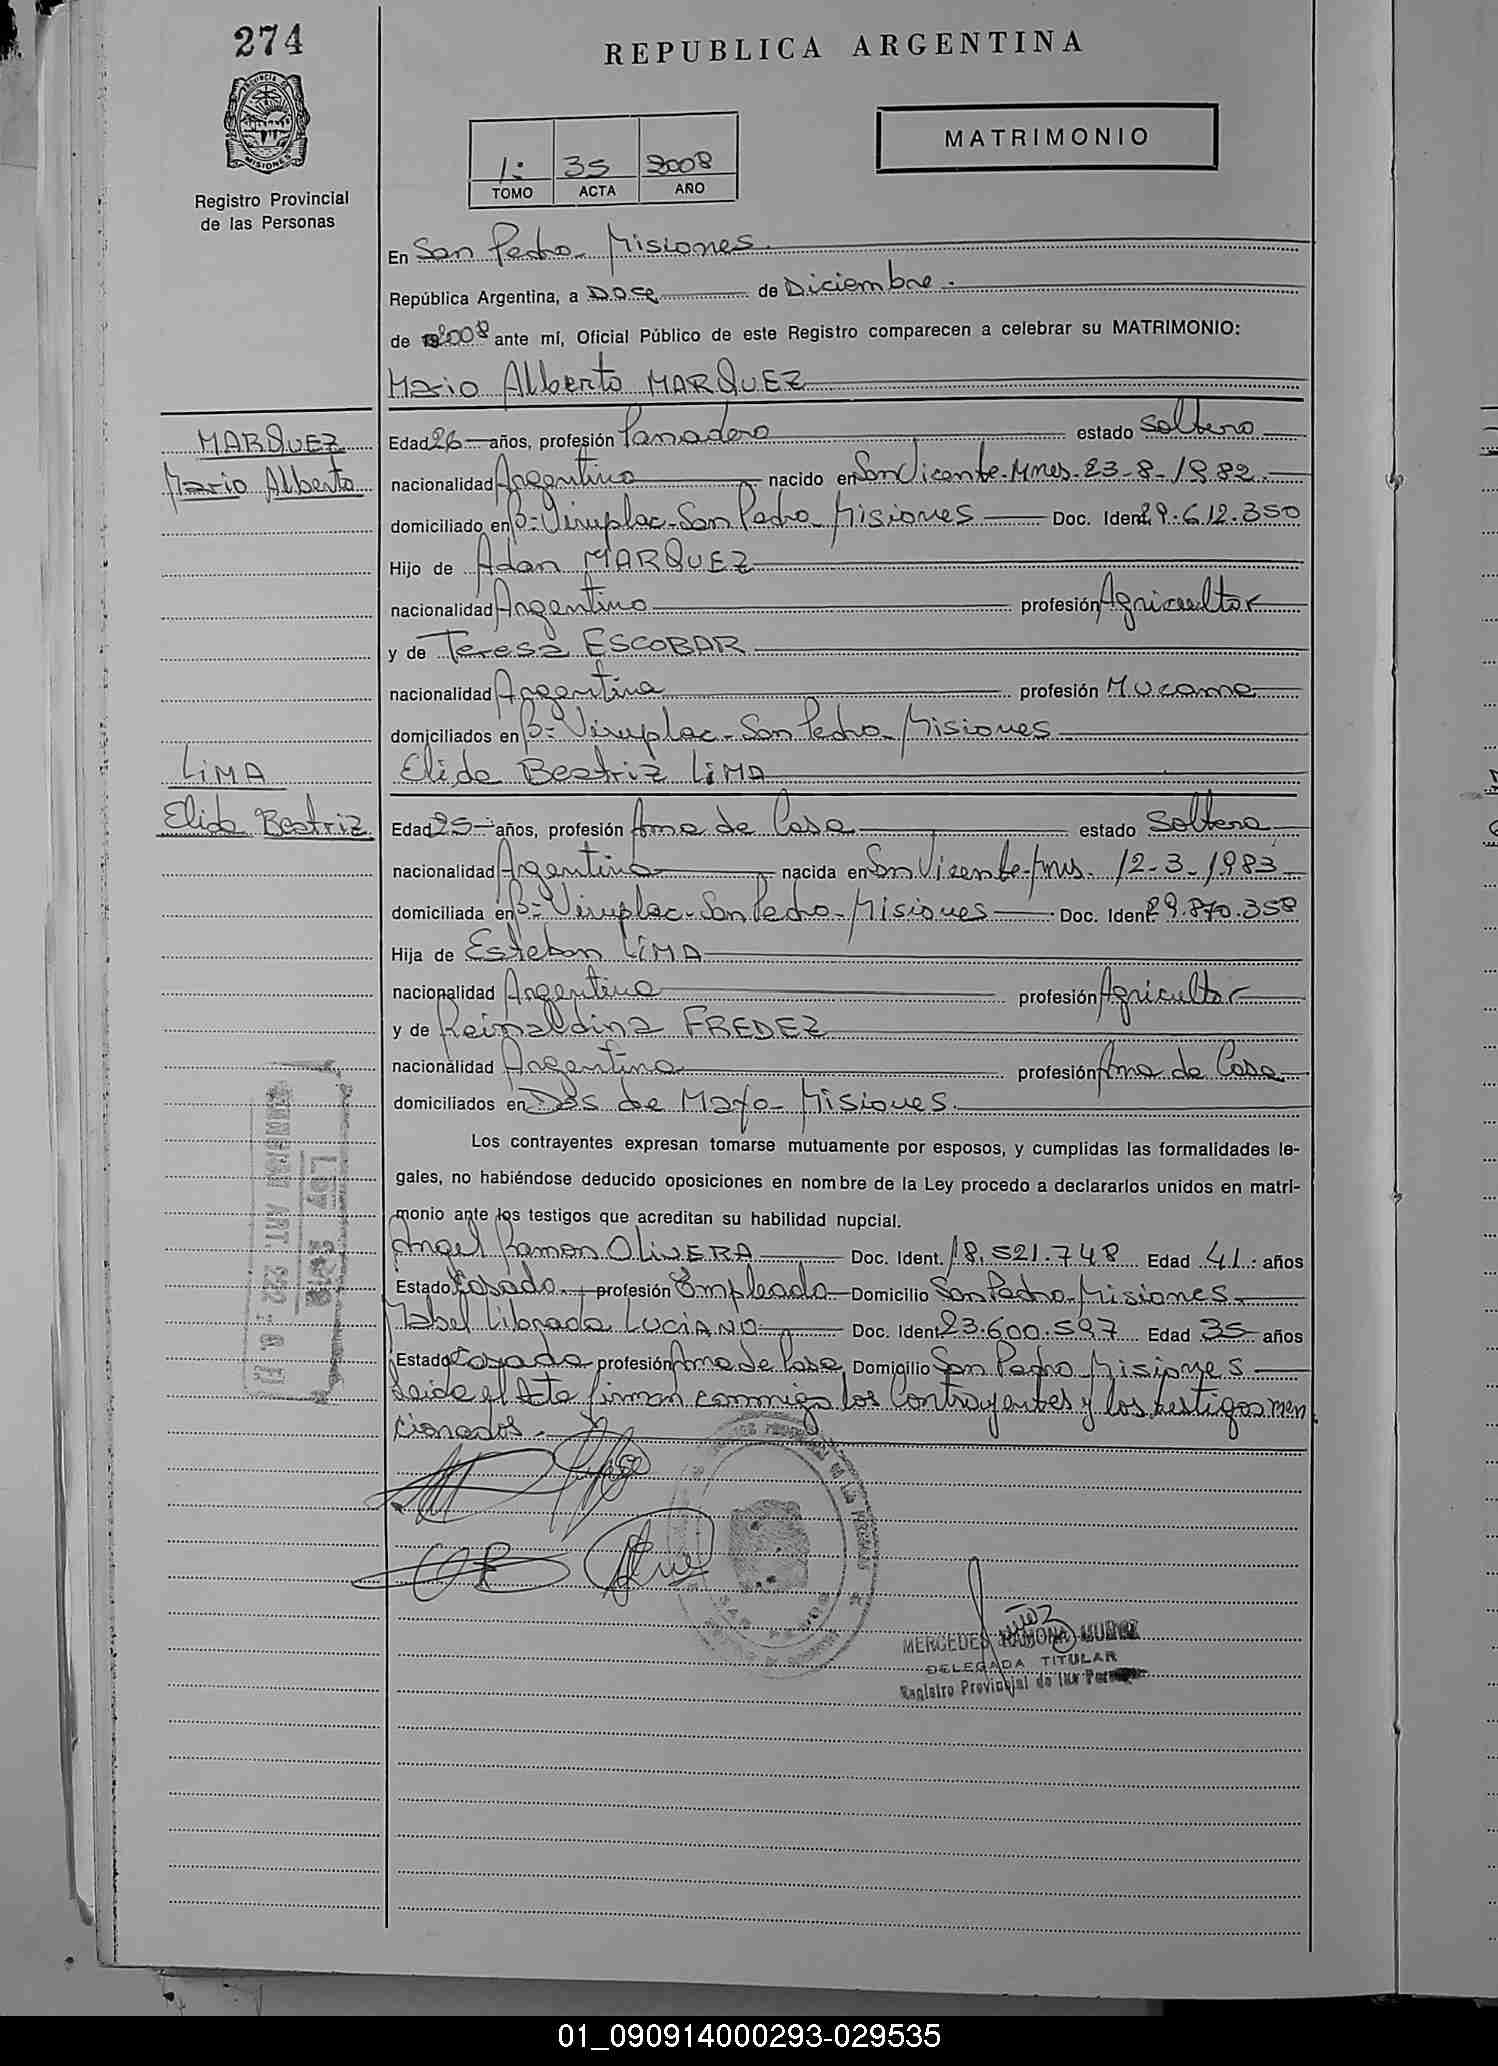 274
REPUBLICA ARGENTINA
PROVINCIA DE MISIONES
MATRIMONIO
1: 35 2008
TOMO ACTA AÑO
Registro Provincial
de las Personas
En San Pedro - Misiones.
República Argentina, a Doce de Diciembre.
de 2008 ante mí, Oficial Público de este Registro comparecen a celebrar su MATRIMONIO:
Mario Alberto MARQUEZ
MARQUEZ
Mario Alberto
Edad 26 años, profesión Panadero estado Soltero
nacionalidad Argentino nacido en San Vicente-Mnes. 23-8-1982.
domiciliado en Bº Viruplac-San Pedro-Misiones Doc. Ident. 29.612.350
Hijo de Adan MARQUEZ
nacionalidad Argentino profesión Agricultor
y de Teresa ESCOBAR
nacionalidad Argentina profesión Mucama
domiciliados en Bº Viruplac-San Pedro-Misiones
LiMA
Elida Beatriz
Elida Beatriz LiMA
Edad 25 años, profesión Ama de Casa estado Soltera
nacionalidad Argentina nacida en San Vicente-Mnes. 12-3-1983
domiciliada en Bº Viruplac-San Pedro-Misiones Doc. Ident. 29.870.358
Hija de Esteban LiMA
nacionalidad Argentino profesión Agricultor
y de Reinaldina FREDEZ
nacionalidad Argentina profesión Ama de Casa
domiciliados en Dos de Mayo-Misiones.
Los contrayentes expresan tomarse mutuamente por esposos, y cumplidas las formalidades le-
gales, no habiéndose deducido oposiciones en nombre de la Ley procedo a declararlos unidos en matri-
monio ante los testigos que acreditan su habilidad nupcial.
Angel Ramon OLiVERA Doc. Ident. 18.521.748 Edad 41 años
Estado Casado profesión Empleado Domicilio San Pedro-Misiones
Mabel Librada LUCiANO Doc. Ident. 23.600.597 Edad 35 años
Estado Casada profesión Ama de Casa Domicilio San Pedro Misiones
Leida el Acta firman conmigo los Contrayentes y los testigos men
cionados.
MERCEDES RAMONA
DELEGADA TITULAR
Registro Provincial de las
01_090914000293-029535